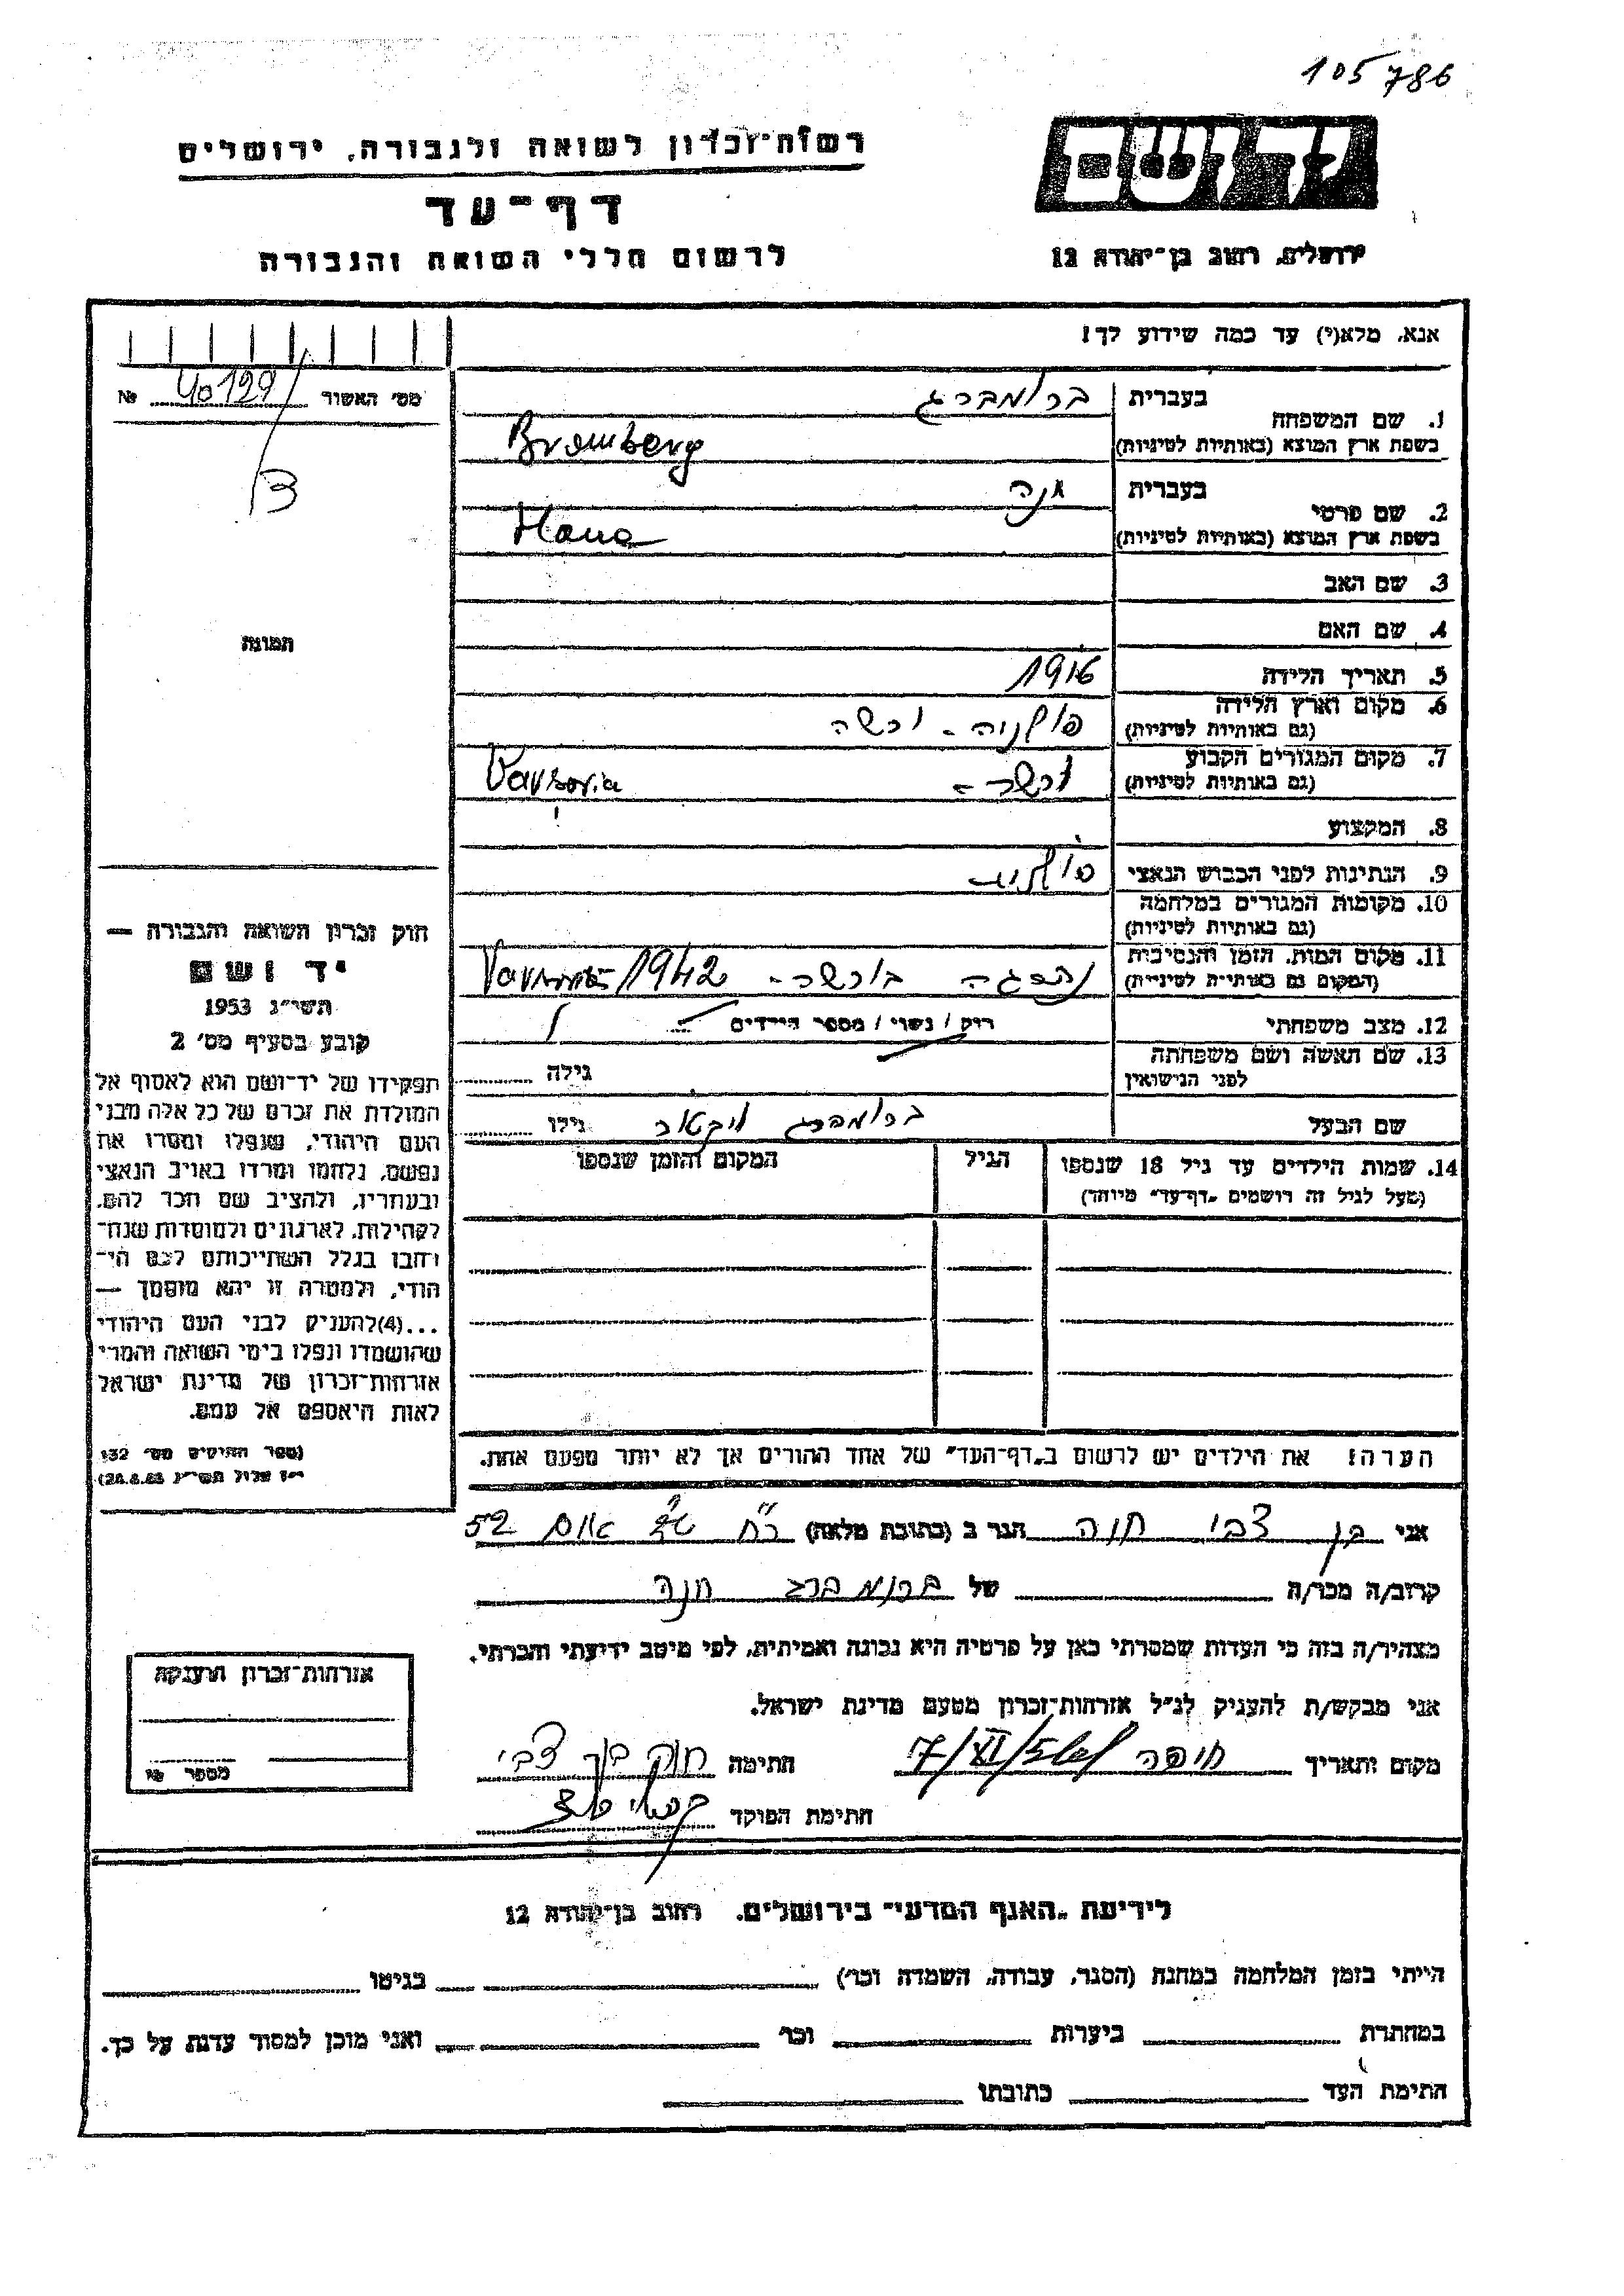 105786
יד ושם
רשות־זכרון לשואה ולגבורה, ירושלים
דף־עד
לרשום חללי השואה והגבורה
ירושלים, רחוב בן־יהודה 12
אנא, מלא(י) עד כמה שידוע לך!
מס' האשור 40129 №
B
תמונה
1. שם המשפחה
בעברית ברומברג
בשפת ארץ המוצא (באותיות לטיניות) Bromberg
2. שם פרטי
בעברית חנה
בשפת ארץ המוצא (באותיות לטיניות) Hana
3. שם האב
4. שם האם
5. תאריך הלידה 1916
6. מקום וארץ הלידה פולניה - ורשה
(גם באותיות לטיניות)
7. מקום המגורים הקבוע ורשה - Varsovia
(גם באותיות לטיניות)
8. המקצוע
9. הנתינות לפני הכבוש הנאצי
10. מקומות המגורים במלחמה
(גם באותיות לטיניות)
11. מקום המות, הזמן והנסיבות בורשה - 1942
(המקום גם באותיות לטיניות)
12. מצב משפחתי רווק / נשוי / מספר הילדים
13. שם האשה ושם משפחתה
לפני הנישואין גילה
שם הבעל ברומברג ויקטור גילו
14. שמות הילדים עד גיל 18 שנספו
(מעל לגיל זה רושמים „דף־עד" מיוחד)
הגיל
המקום והזמן שנספו
הערה! את הילדים יש לרשום ב„דף־העד" של אחד ההורים אך לא יותר מפעם אחת.
חוק זכרון השואה והגבורה —
יד ושם
תשי"ג 1953
קובע בסעיף מס' 2
תפקידו של יד־ושם הוא לאסוף אל
המולדת את זכרם של כל אלה מבני
העם היהודי, שנפלו ומסרו את
נפשם, נלחמו ומרדו באויב הנאצי
ובעוזריו, ולהציב שם וזכר להם,
לקהילות, לארגונים ולמוסדות שנח־
רבו בגלל השתייכותם לעם הי־
הודי, ולמטרה זו יהא מוסמך —
...(4)להעניק לבני העם היהודי
שהושמדו ונפלו בימי השואה והמרי
אזרחות־זכרון של מדינת ישראל
לאות היאספם אל עמם.
(ספר החוקים מס' 132
י"ז אלול תשי"ג 28.8.53)
אני בן צבי חנה הגר ב (כתובת מלאה) 52
קרוב/ה מכר/ה של ברומברג חנה
מצהיר/ה בזה כי העדות שמסרתי כאן על פרטיה היא נכונה ואמיתית, לפי מיטב ידיעתי והכרתי.
אני מבקש/ת להעניק לנ"ל אזרחות־זכרון מטעם מדינת ישראל.
מקום ותאריך חיפה חתימה חנה בן צבי
חתימת הפוקד
אזרחות־זכרון הוענקה
מספר №
לידיעת „האגף המדעי" בירושלים, רחוב בן־יהודה 12
הייתי בזמן המלחמה במחנה (הסגר, עבודה, השמדה וכו') בגיטו
במחתרת ביערות וכו' ואני מוכן למסור עדות על כך.
חתימת העד כתובתו